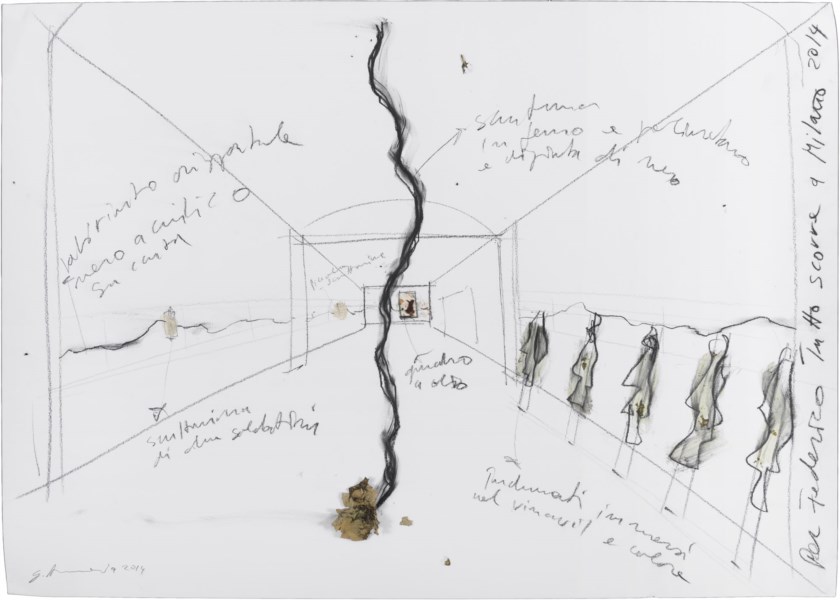 labirinto orizzontale
nero acrilico
su carta
scultura
in ferro e poliuretano
e dipinta di nero
quadro
a olio
sculturina
di due soldatini
Indumenti immersi
nel vinavil e colore
Per Federico Tutto scorre a Milano 2014
2014